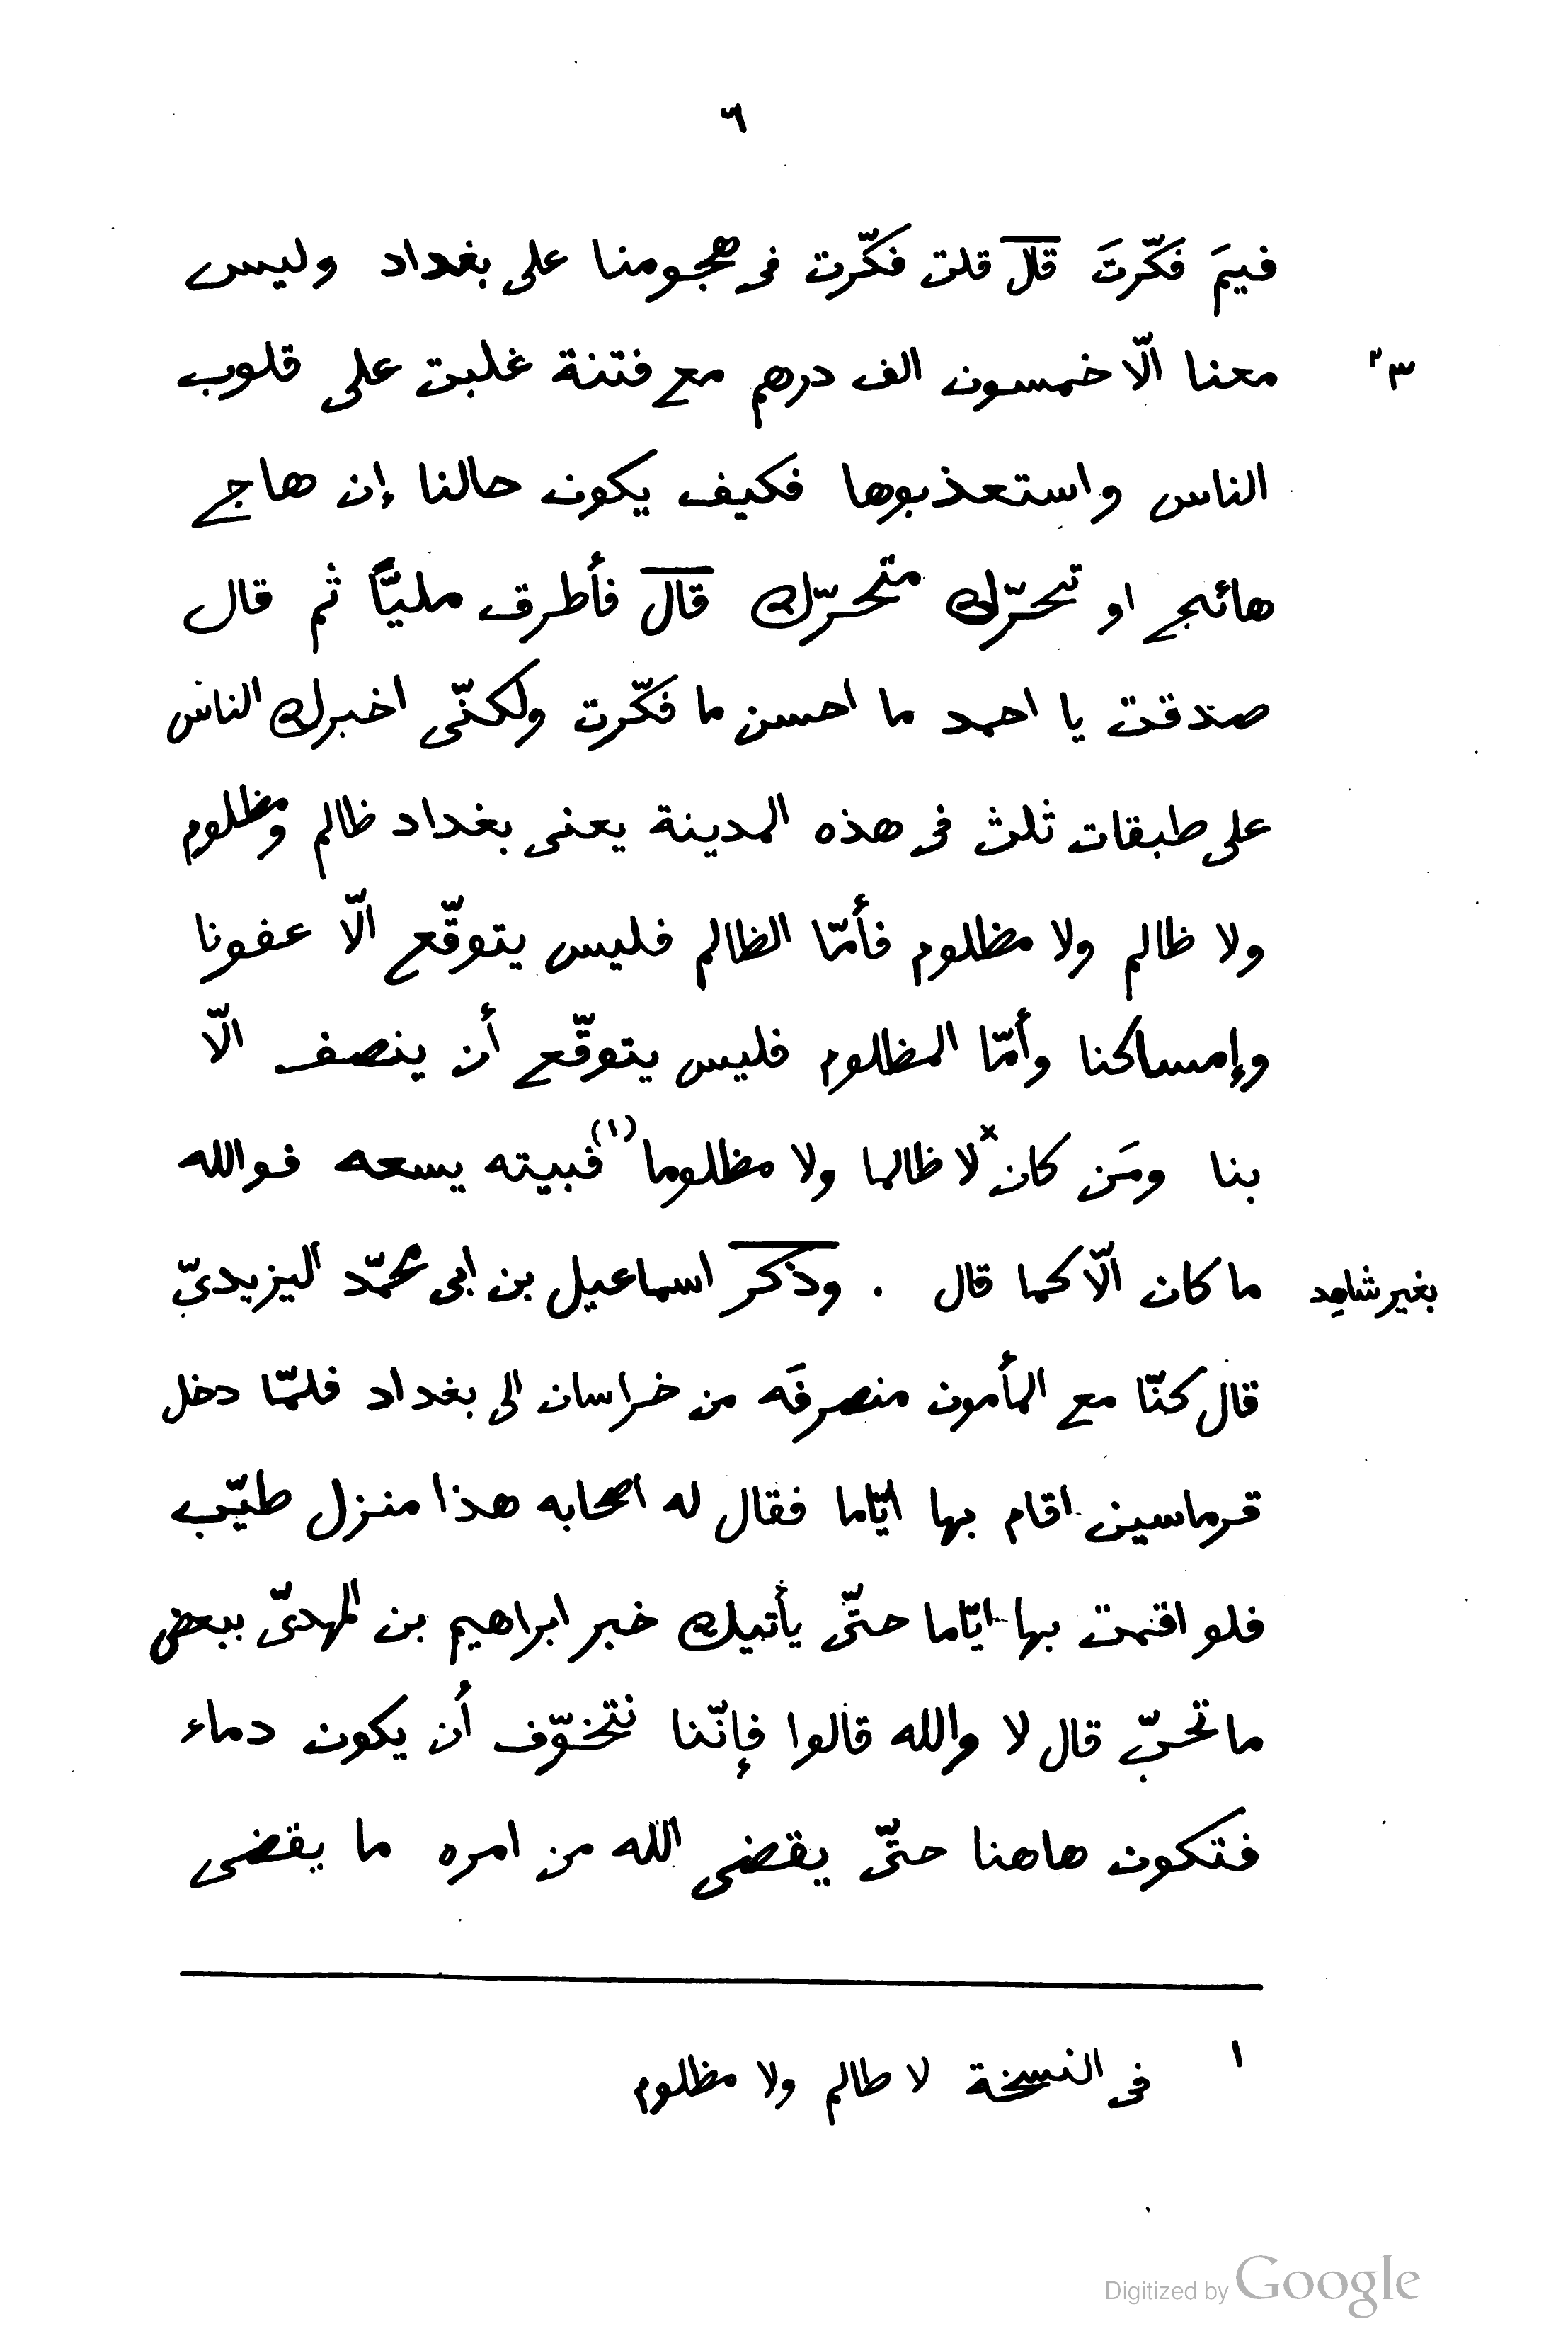 ٦
فيمَ فَكّرتَ قال قلت فكّرت فى هجومنا على بغداد وليس
معنا الّا خمسون الف درهم مع فتنة غلبت على قلوب
الناس واستعذبوها فكيف يكون حالنا إن هاج
هائج او تحرّك متحرّك قال فأطرق مليًّا ثم قال
صدقت يا احمد ما احسن ما فكّرت ولكنّى اخبرك الناس
على طبقات ثلث فى هذه المدينة يعنى بغداد ظالم ومظلوم
ولا ظالم ولا مظلوم فأمّا الظالم فليس يتوقّع الّا عفونا
وإمساكنا وأمّا المظلوم فليس يتوقّع أن ينصف الّا
بنا ومَن كان × لا ظالما ولا مظلوما (١) فبيته يسعه فوالله
بغير شاهد ما كان الّا كما قال . وذكر اسماعيل بن ابى محمّد اليزيدىّ
قال كنّا مع المأمون منصرفَه من خراسان الى بغداد فلمّا دخل
قرماسين اقام بها ايّاما فقال له اصحابه هذا منزل طيّب
فلو اقمت بها ايّاما حتّى يأتيك خبر ابراهيم بن المهدىّ ببعض
ما تحبّ قال لا والله قالوا فإنّنا نتخوّف أن يكون دماء
فتكون هاهنا حتّى يقضى الله من امره ما يقضى
١ فى النسخة لا طالم ولا مظلوم
Digitized by Google